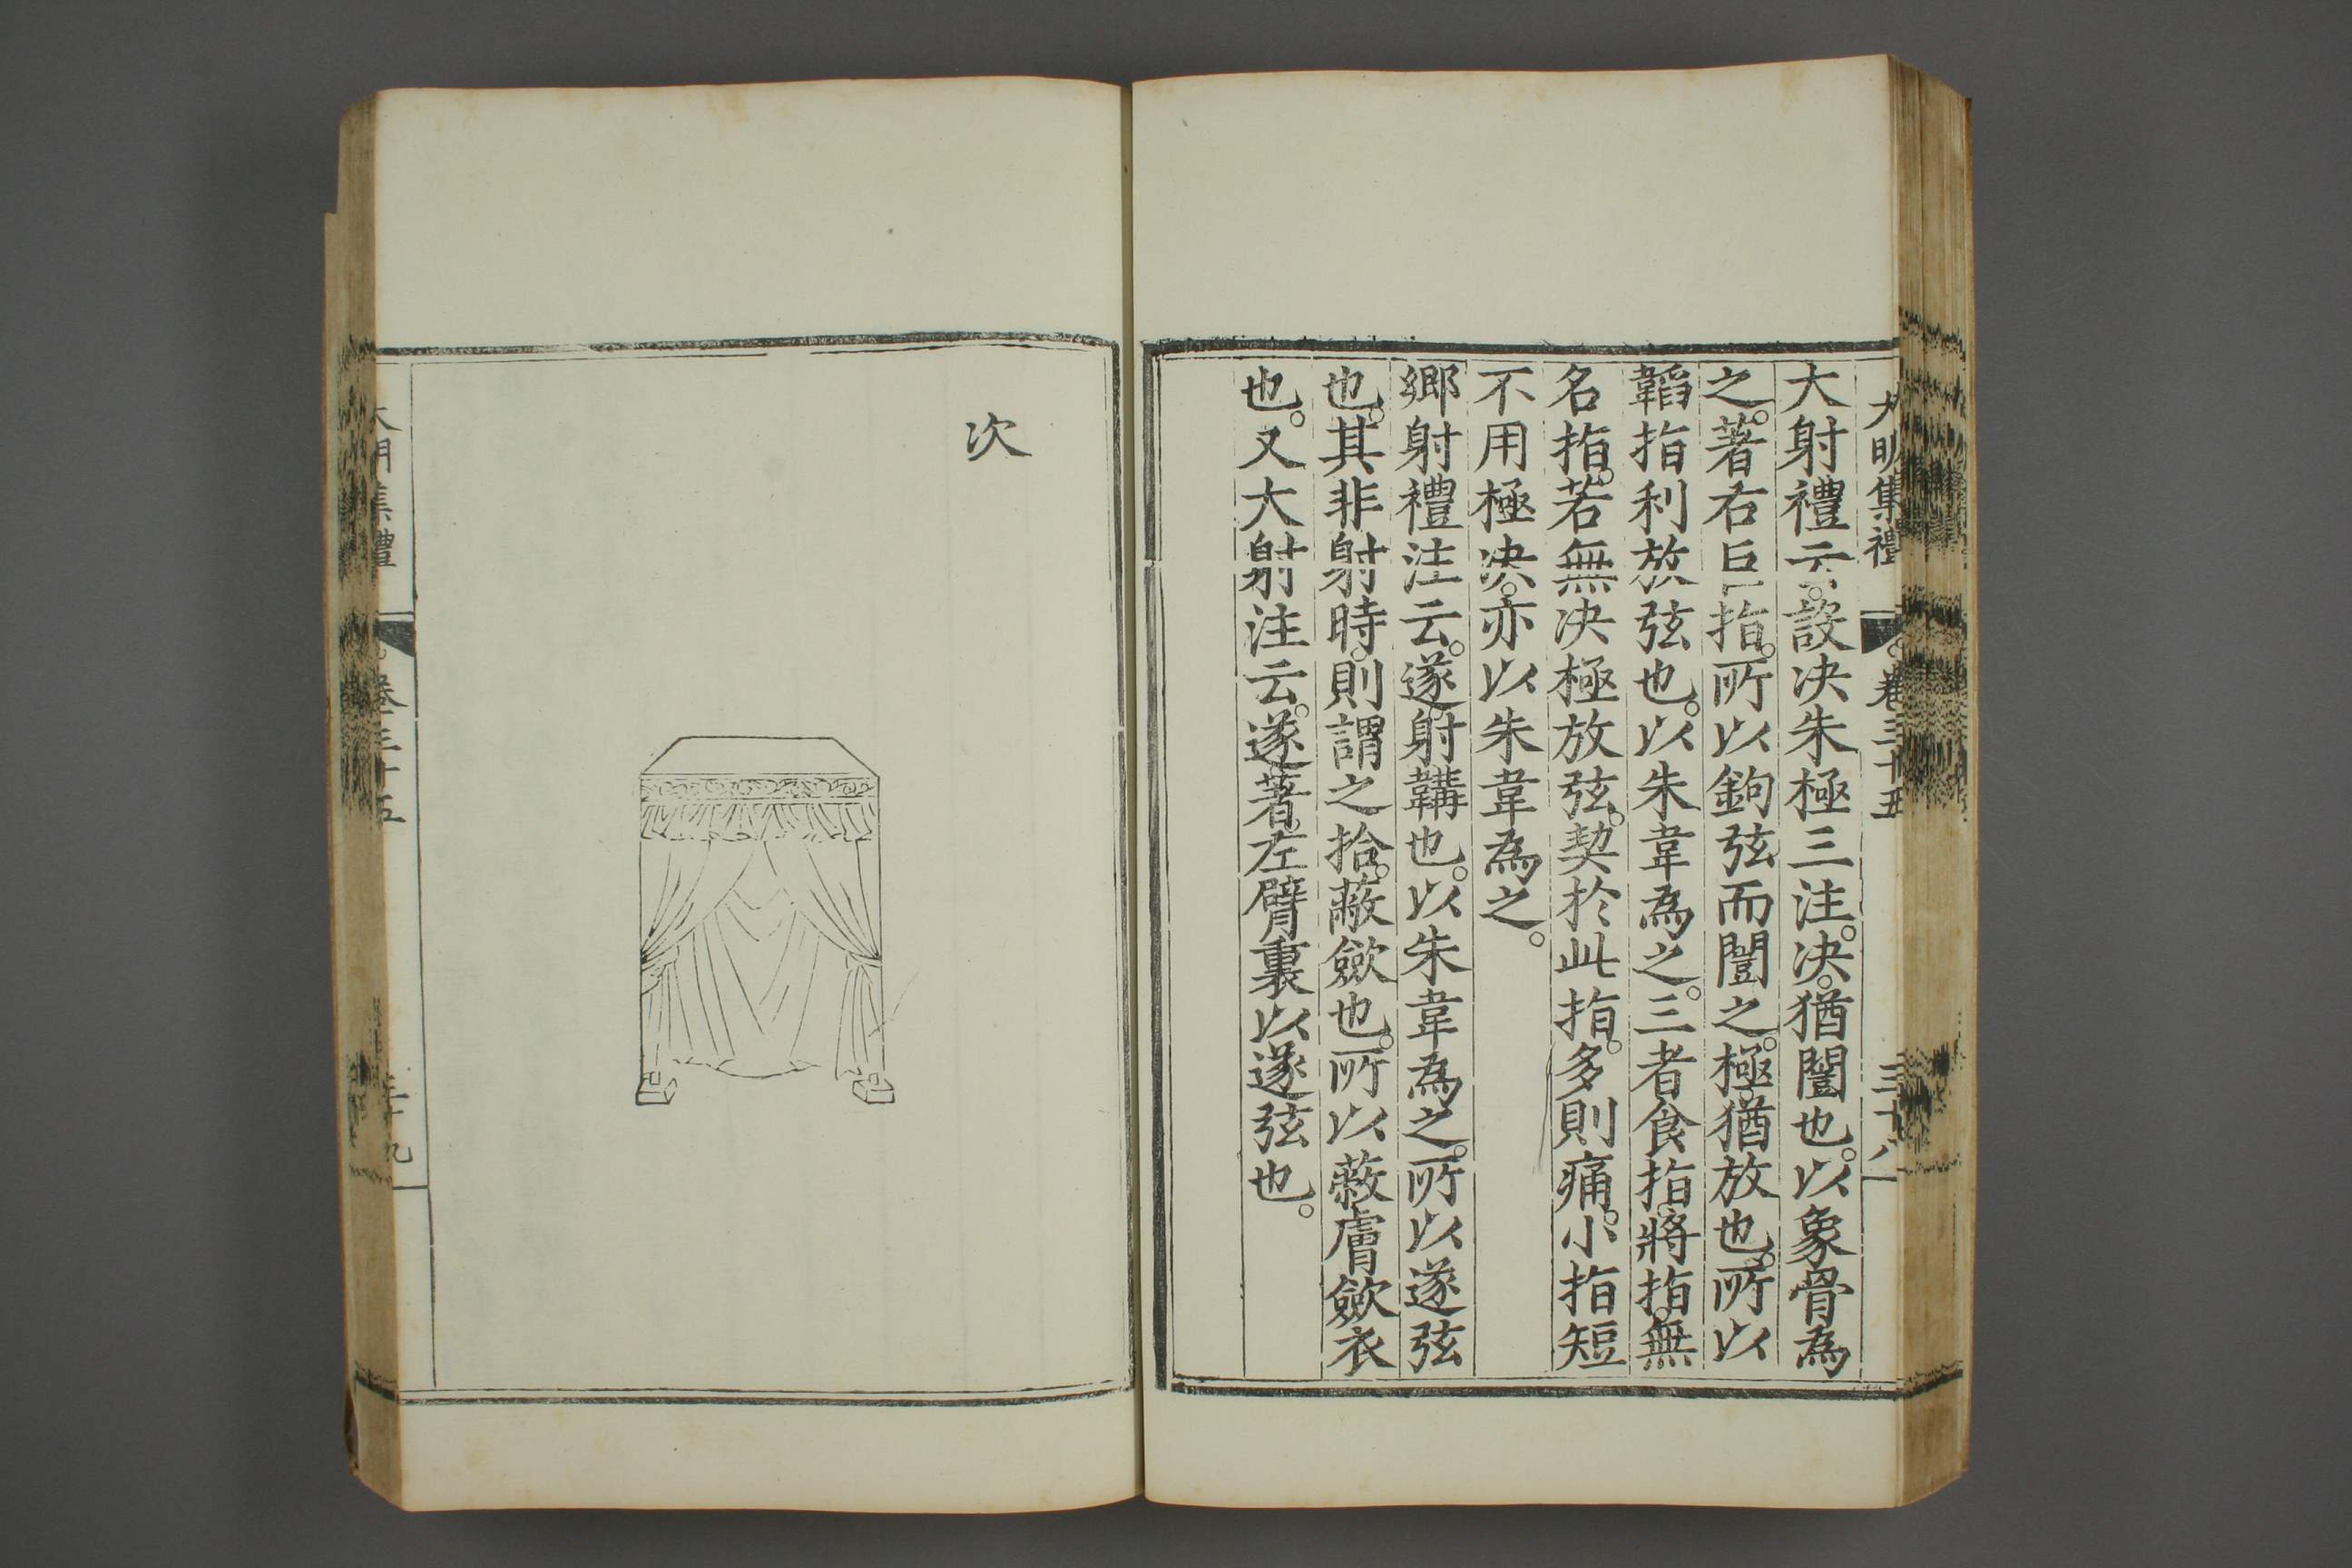 大明集禮 卷三十五 三十八
大射禮云。設决朱極三注。决。猶闓也。以象骨為
之。著右巨指。所以鉤弦而闓之。極。猶放也。所以
韜指利放弦也。以朱韋為之。三者食指。將指。無
名指。若無决極放弦。契於此指。多則痛。小指短
不用極决。亦以朱韋為之。
鄉射禮注云。遂。射韝也。以朱韋為之。所以遂弦
也。其非射時。則謂之拾。蔽斂也。所以蔽膚斂衣
也。又大射注云。遂。著左臂裏以遂弦也。
次
大明集禮 卷三十五 三十九